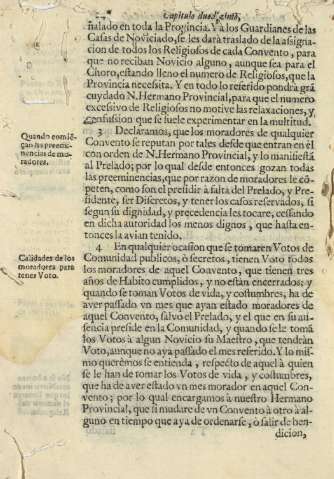 Capitulo duodezimo,
ñalado en toda la Provincia. Y a los Guardianes de las
Casas de Noviciado, se les darà traslado de la asigna-
cion de todos los Religiosos de cada Convento, para
que no reciban Novicio alguno, aunque sea para el
Choro, estando lleno el numero de Religiosos, que la
Provincia necessita. Y en todo lo referido pondra gra
cuydado N. Hermano Provincial, para que el numero
excessivo de Religiosos no motive las relaxaciones, y
confusion que se suele experimentar en la multitud.
Quando comiē-
çan las preemi-
nencias de mo-
radores.
3 Declaramos, que los moradores de qualquier
Convento se reputan por tales desde que entran en èl
con orden de N. Hermano Provincial, y lo manifiestā
al Prelado; por lo qual desde entonces gozan todas
las preeminencias, que por razon de moradores le cō-
peten, como son el presidir à falta del Prelado, y Pre-
sidente, ser Discretos, y tener los casos reservados, si
segun su dignidad, y precedencia les tocare, cessando
en dicha autoridad los menos dignos, que hasta en-
tonces la avian tenido.
Calidades de los
moradores para
tener Voto.
4 En qualquier ocasion que se tomaren Votos de
Comunidad publicos, ò secretos, tienen Voto todos
los moradores de aquel Convento, que tienen tres
años de Habito cumplidos, y no estàn encerrados; y
quando se toman Votos de vida, y costumbres, ha de
aver passado vn mes que ayan estado moradores de
aquel Convento, salvo el Prelado, y el que en su au-
sencia preside en la Comunidad, y quando se le tomā
los Votos à algun Novicio su Maestro, que tendràn
Voto, aunque no aya passado el mes referido. Y lo mis-
mo queremos se entienda, respecto de aquel à quien
se le han de tomar los Votos de vida, y costumbres,
que ha de aver estado vn mes morador en aquel Con-
vento; por lo qual encargamos à nuestro Hermano
Provincial, que si mudare de vn Convento à otro à al-
guno en tiempo que aya de ordenarse, ò salir de ben-
dicion,